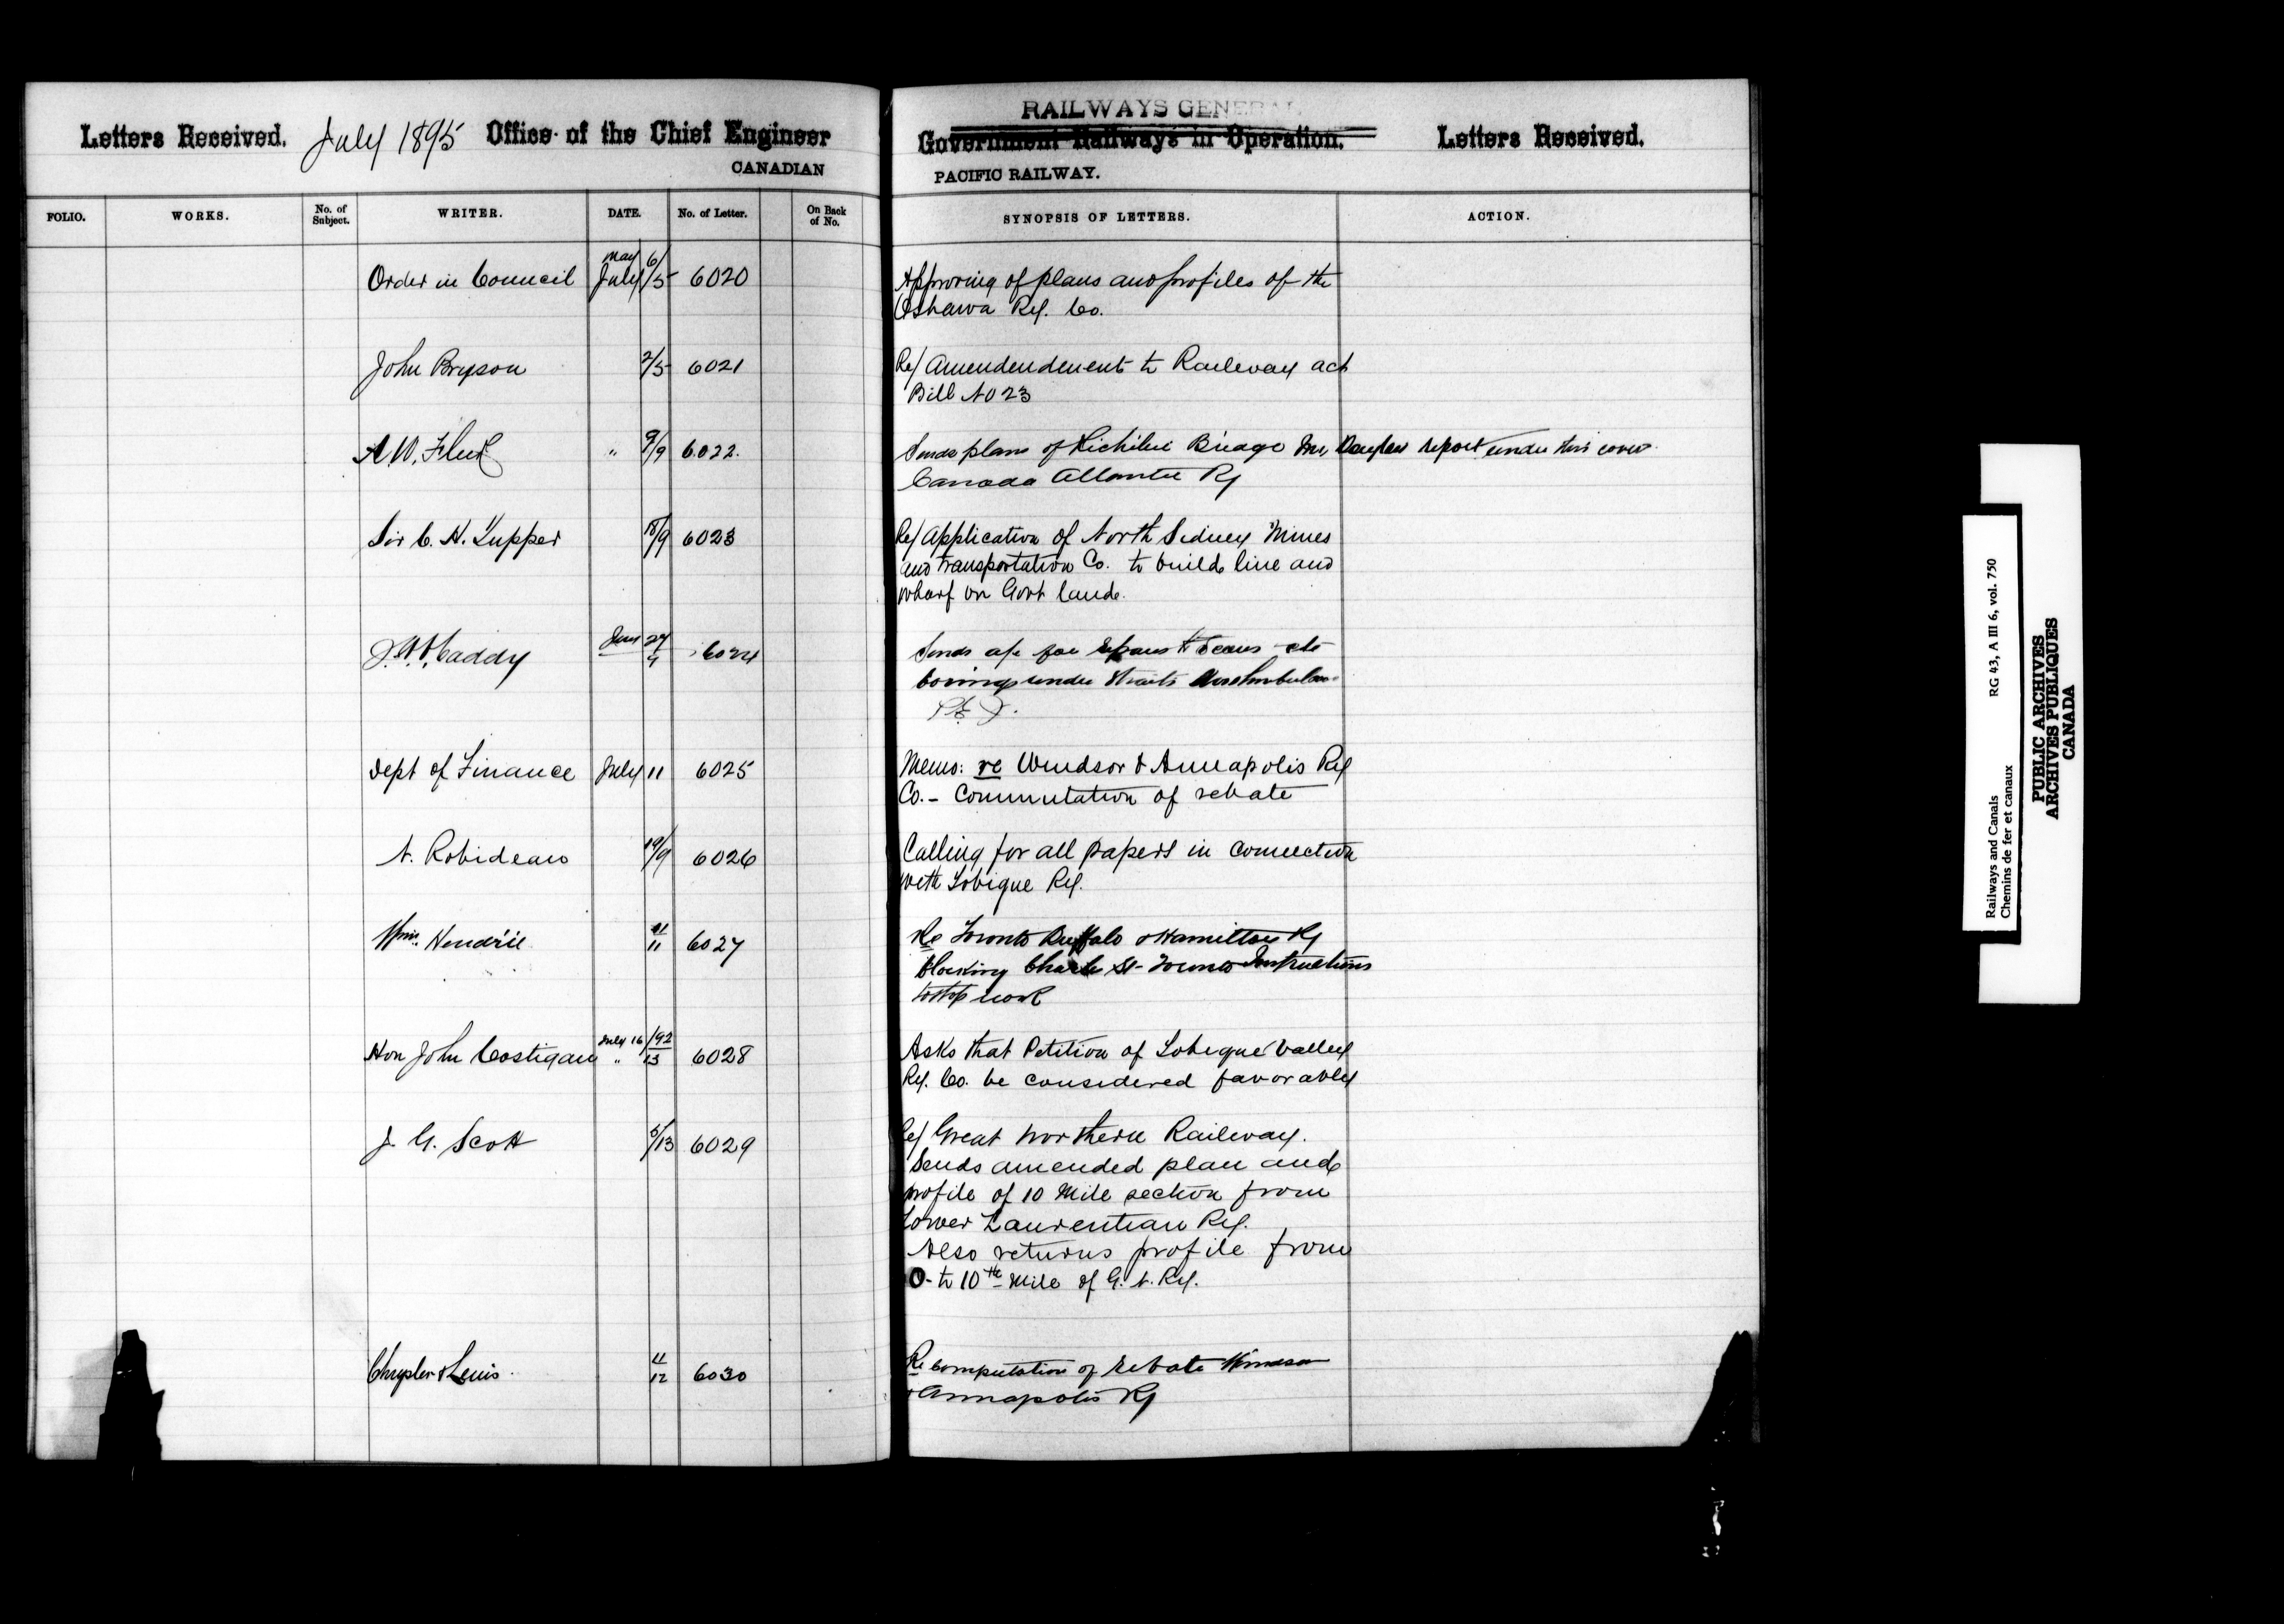 Letters Received. July 1895 Office of the Chief Engineer
CANADIAN
RAILWAYS GENERAL
Government Railways in Operation. Letters Received.
PACIFIC RAILWAY.
FOLIO. WORKS. No. of Subject. WRITER. DATE. No. of Letter. On Back of No. SYNOPSIS OF LETTERS. ACTION.
May 6
Order in Council July /5 6020 Approving of plans and profiles of the
Oshawa Ry. Co.
John Bryson 2/5 6021 Re/ Amendendement to Railway act
Bill No 23
A.W. Fleck " 9/9 6022. Sends plans of Richilieu Bridge Mr. Douglas report under this cover
Canada Atlantic Ry
Sir C. H. Tupper 18/9 6023 Re/ Application of North Sidney Mines
and Transportation Co. to build line and
wharf on Govt lands.
J. Caddy June 24/9 6024 Sends a/c for
borings under Straits Northumberland
P.E.I.
Dept of Finance July 11 6025 Memo: re Windsor & Annapolis Ry
Co. - Commutation of rebate
N. Robideau 19/9 6026 Calling for all papers in connection
with Tobique Ry.
Wm. Hendrie 11/11 6027 Re Toronto Buffalo & Hamilton Ry
blocking St- Toronto Instructions
to stop work
July 16/92
Hon John Costigan " 13 6028 Asks that Petition of Tobique Valley
Ry. Co. be considered favorably
J. G. Scott 5/13 6029 Re/ Great Northern Railway.
Sends amended plan and
profile of 10 Mile section from
Lower Laurentian Ry.
Also returns profile from
0- to 10th Mile of G. N. Ry.
Chrysler & Lewis. 11/12 6030 Re computation of rebate Windsor
& Annapolis Ry
Railways and Canals RG 43, A III 6, vol. 750
Chemins de fer et canaux
PUBLIC ARCHIVES
ARCHIVES PUBLIQUES
CANADA